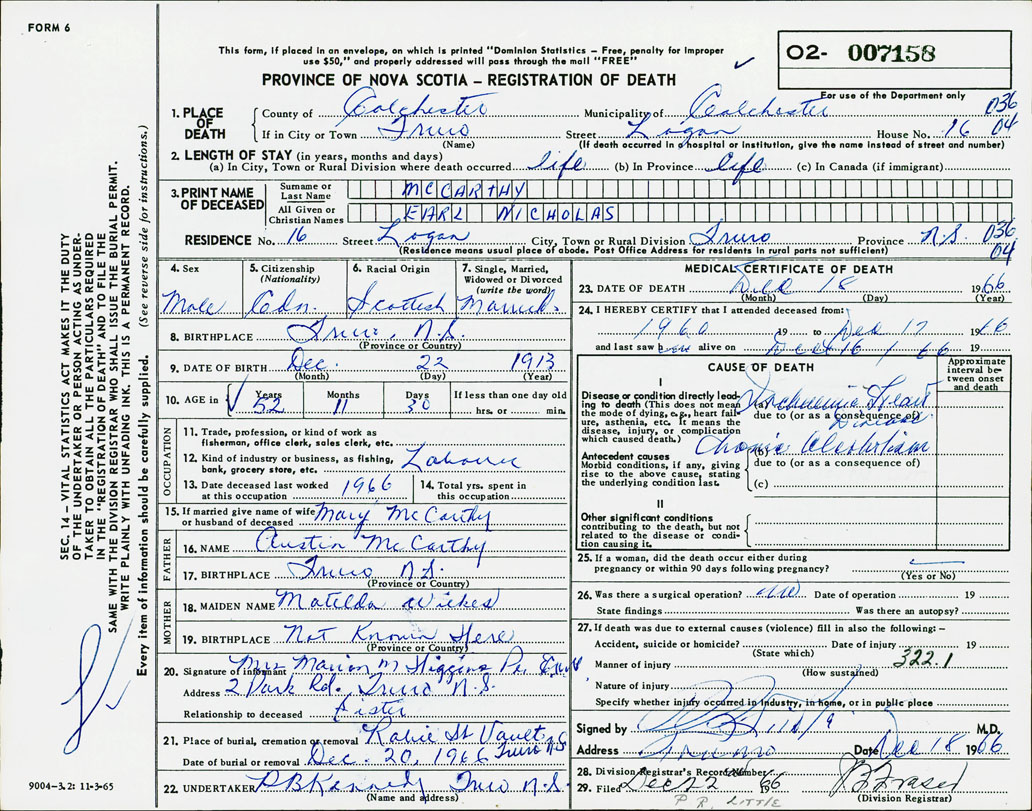 FORM 6
This form, if placed in an envelope, on which is printed "Dominion Statistics – Free, penalty for improper
use $50," and properly addressed will pass through the mail "FREE"
O2- 007158
PROVINCE OF NOVA SCOTIA – REGISTRATION OF DEATH
For use of the Department only
1. PLACE OF DEATH County of Colchester Municipality of Colchester 036
If in City or Town Truro Street Logan House No. 16 04
(Name) (If death occurred in a hospital or institution, give the name instead of street and number)
2. LENGTH OF STAY (in years, months and days)
(a) In City, Town or Rural Division where death occurred life (b) In Province life (c) In Canada (if immigrant)
3. PRINT NAME OF DECEASED Surname or Last Name MCCARTHY
All Given or Christian Names EARL NICHOLAS
RESIDENCE No. 16 Street Logan City, Town or Rural Division Truro Province N.S. 036
(Residence means usual place of abode. Post Office Address for residents in rural parts not sufficient) 04
4. Sex 5. Citizenship (Nationality) 6. Racial Origin 7. Single, Married, Widowed or Divorced (write the word)
Male Cdn. Scottish Married
8. BIRTHPLACE Truro, N.S.
(Province or Country)
9. DATE OF BIRTH Dec. 22 1913
(Month) (Day) (Year)
10. AGE in Years Months Days If less than one day old
52 11 30 hrs. or min.
OCCUPATION
11. Trade, profession, or kind of work as
fisherman, office clerk, sales clerk, etc.
12. Kind of industry or business, as fishing,
bank, grocery store, etc. Labourer
13. Date deceased last worked
at this occupation 1966
14. Total yrs. spent in
this occupation
15. If married give name of wife
or husband of deceased Mary McCarthy
FATHER
16. NAME Austin McCarthy
17. BIRTHPLACE Truro N.S.
(Province or Country)
MOTHER
18. MAIDEN NAME Matilda Wilkes
19. BIRTHPLACE Not Known Here
(Province or Country)
20. Signature of informant Mrs Marion M Higgins
Address 2 Park Rd. Truro N.S.
Relationship to deceased Sister
21. Place of burial, cremation or removal Robie St Vault
Truro N.S.
Date of burial or removal Dec. 20, 1966
22. UNDERTAKER P B Kennedy Truro N.S.
(Name and address)
MEDICAL CERTIFICATE OF DEATH
23. DATE OF DEATH Dec 18 1966
(Month) (Day) (Year)
24. I HEREBY CERTIFY that I attended deceased from:
1960 19 to Dec 17 1966
and last saw him alive on Dec 16 / 66 19
CAUSE OF DEATH
Approximate interval between onset and death
I
Disease or condition directly lead-
ing to death (This does not mean
the mode of dying, e.g., heart fail-
ure, asthenia, etc. It means the
disease, injury, or complication
which caused death.)
(a) Heart
Disease
due to (or as a consequence of)
Antecedent causes
Morbid conditions, if any, giving
rise to the above cause, stating
the underlying condition last.
(b) Chronic
due to (or as a consequence of)
(c)
II
Other significant conditions
contributing to the death, but not
related to the disease or condi-
tion causing it.
25. If a woman, did the death occur either during
pregnancy or within 90 days following pregnancy?
(Yes or No)
26. Was there a surgical operation? Date of operation 19
State findings Was there an autopsy?
27. If death was due to external causes (violence) fill in also the following: –
Accident, suicide or homicide? Date of injury 19
(State which) 322.1
Manner of injury
(How sustained)
Nature of injury
Specify whether injury occurred in industry, in home, or in public place
Signed by M.D.
Address Truro Date Dec 18 1966
28. Division Registrar's Record Number
29. Filed Dec 22 1966 Fraser
(Division Registrar)
P R LITTLE
SEC. 14 – VITAL STATISTICS ACT MAKES IT THE DUTY
OF THE UNDERTAKER OR PERSON ACTING AS UNDER-
TAKER TO OBTAIN ALL THE PARTICULARS REQUIRED
IN THE "REGISTRATION OF DEATH" AND TO FILE THE
SAME WITH THE DIVISION REGISTRAR WHO SHALL ISSUE THE BURIAL PERMIT.
WRITE PLAINLY WITH UNFADING INK. THIS IS A PERMANENT RECORD.
Every item of information should be carefully supplied. (See reverse side for instructions.)
9004-3.2: 11-3-65